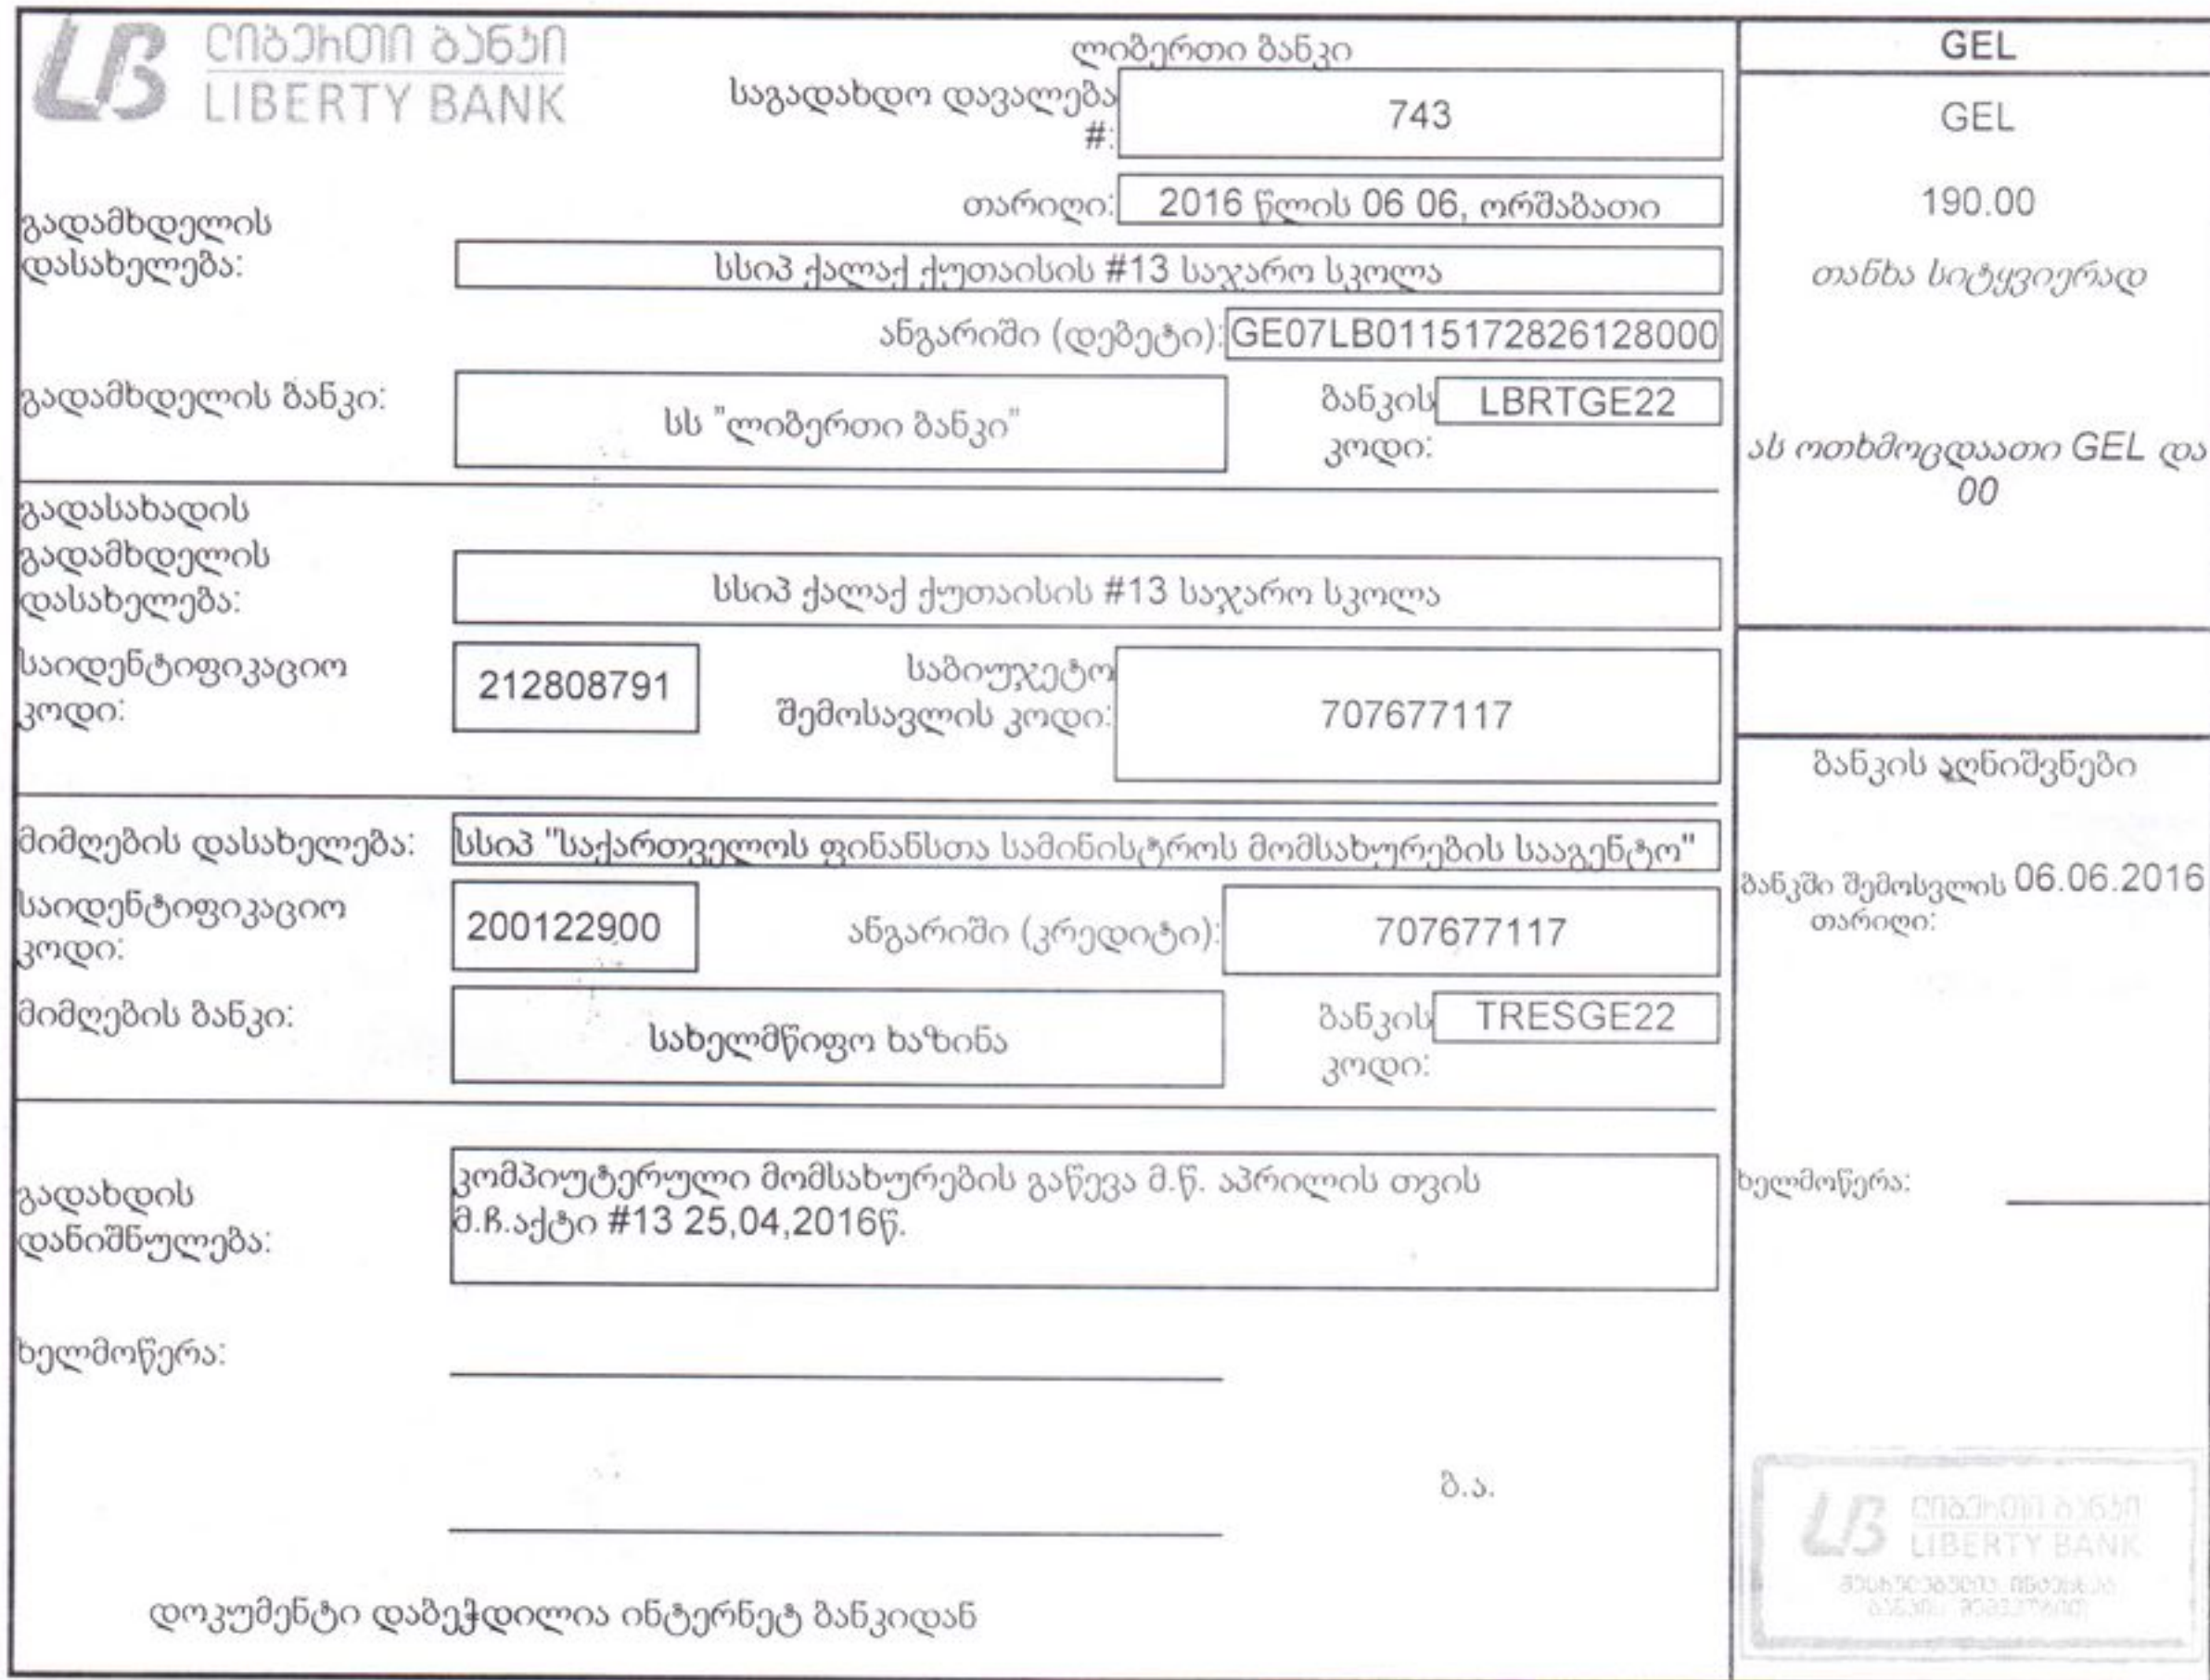 ლიბერთი ბანკი
LIBERTY BANK
ლიბერთი ბანკი
საგადახდო დავალება
#:
743
თარიღი:
2016 წლის 06 06, ორშაბათი
გადამხდელის
დასახელება:
სსიპ ქალაქ ქუთაისის #13 საჯარო სკოლა
ანგარიში (დებეტი):
GE07LB0115172826128000
გადამხდელის ბანკი:
სს "ლიბერთი ბანკი"
ბანკის
კოდი:
LBRTGE22
გადასახადის
გადამხდელის
დასახელება:
სსიპ ქალაქ ქუთაისის #13 საჯარო სკოლა
საიდენტიფიკაციო
კოდი:
212808791
საბიუჯეტო
შემოსავლის კოდი:
707677117
მიმღების დასახელება:
სსიპ "საქართველოს ფინანსთა სამინისტროს მომსახურების სააგენტო"
საიდენტიფიკაციო
კოდი:
200122900
ანგარიში (კრედიტი):
707677117
მიმღების ბანკი:
სახელმწიფო ხაზინა
ბანკის
კოდი:
TRESGE22
გადახდის
დანიშნულება:
კომპიუტერული მომსახურების გაწევა მ.წ. აპრილის თვის
მ.ჩ.აქტი #13 25,04,2016წ.
ხელმოწერა:
ბ.ა.
დოკუმენტი დაბეჭდილია ინტერნეტ ბანკიდან
GEL
GEL
190.00
თანხა სიტყვიერად
ას ოთხმოცდაათი GEL და
00
ბანკის აღნიშვნები
ბანკში შემოსვლის 06.06.2016
თარიღი:
ხელმოწერა:
ლიბერთი ბანკი
LIBERTY BANK